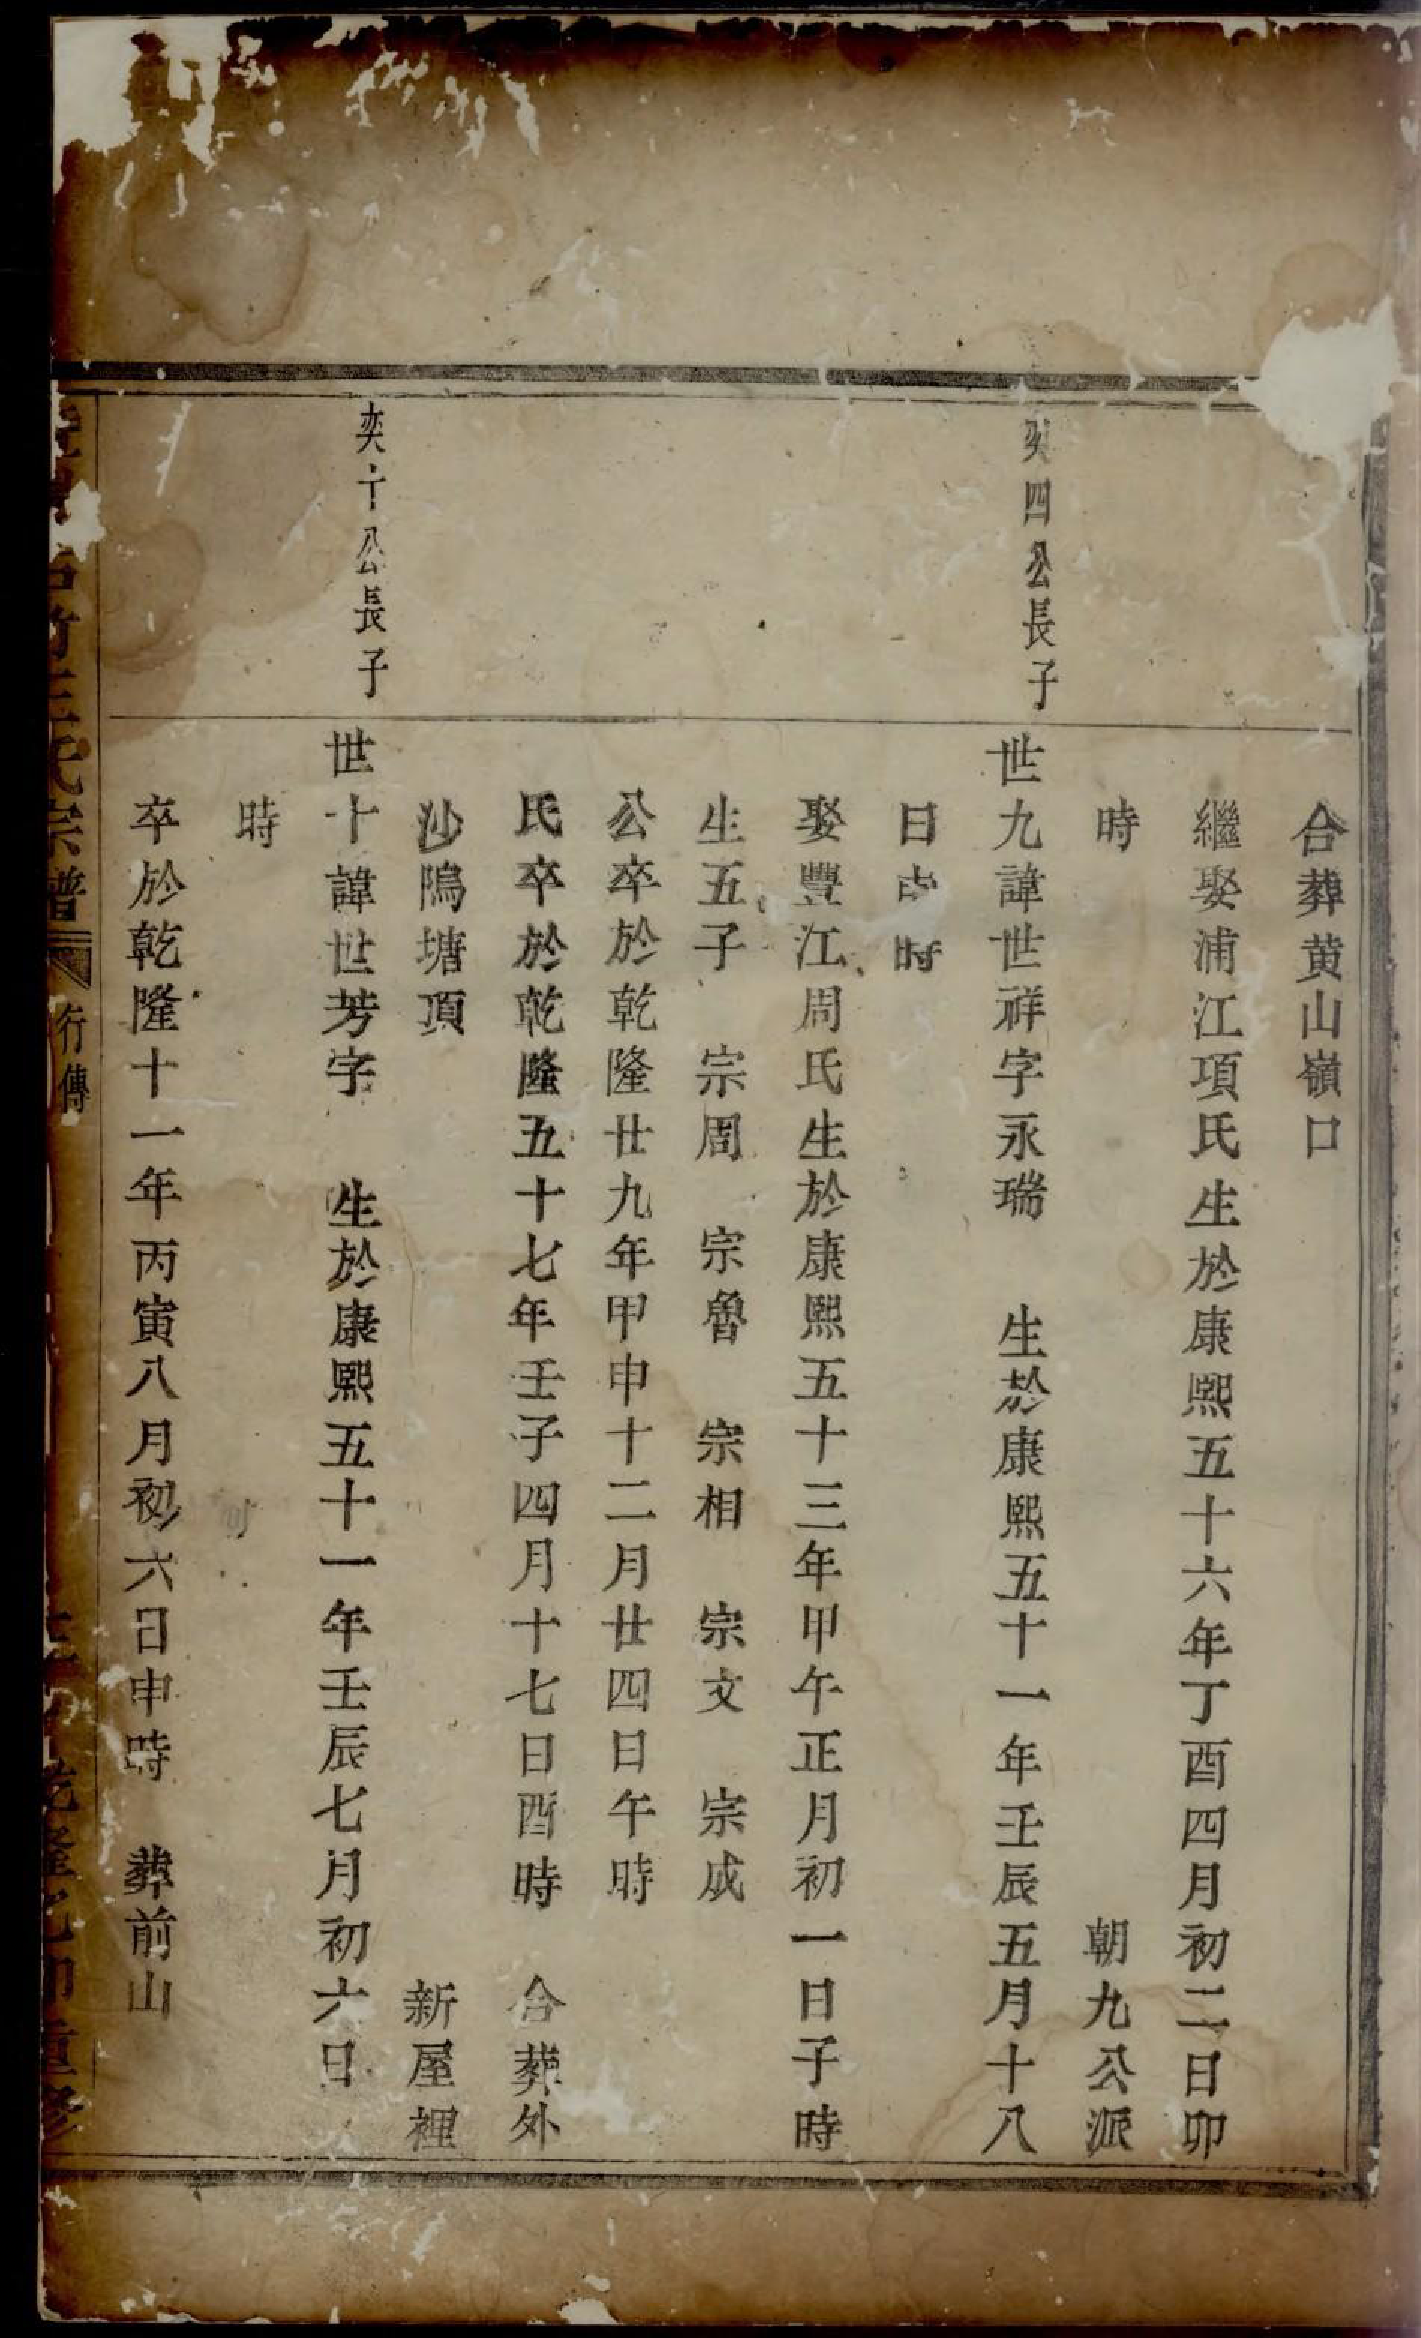 合葬黄山嶺口
繼娶浦江項氏生於康熙五十六年丁酉四月初二日卯
時 朝九公派
奕四公長子
世九諱世祥字永瑞 生於康熙五十一年壬辰五月十八
日 時
娶豐江周氏生於康熙五十三年甲午正月初一日子時
生五子 宗周 宗魯 宗相 宗文 宗成
公卒於乾隆廿九年甲申十二月廿四日午時
氏卒於乾隆五十七年壬子四月十七日酉時 合葬外
沙隝塘項 新屋裡
奕十公長子
世十諱世芳字 生於康熙五十一年壬辰七月初六日
時
卒於乾隆十一年丙寅八月初六日申時 葬前山
竹王氏宗譜 行傳 乾隆乙卯重修